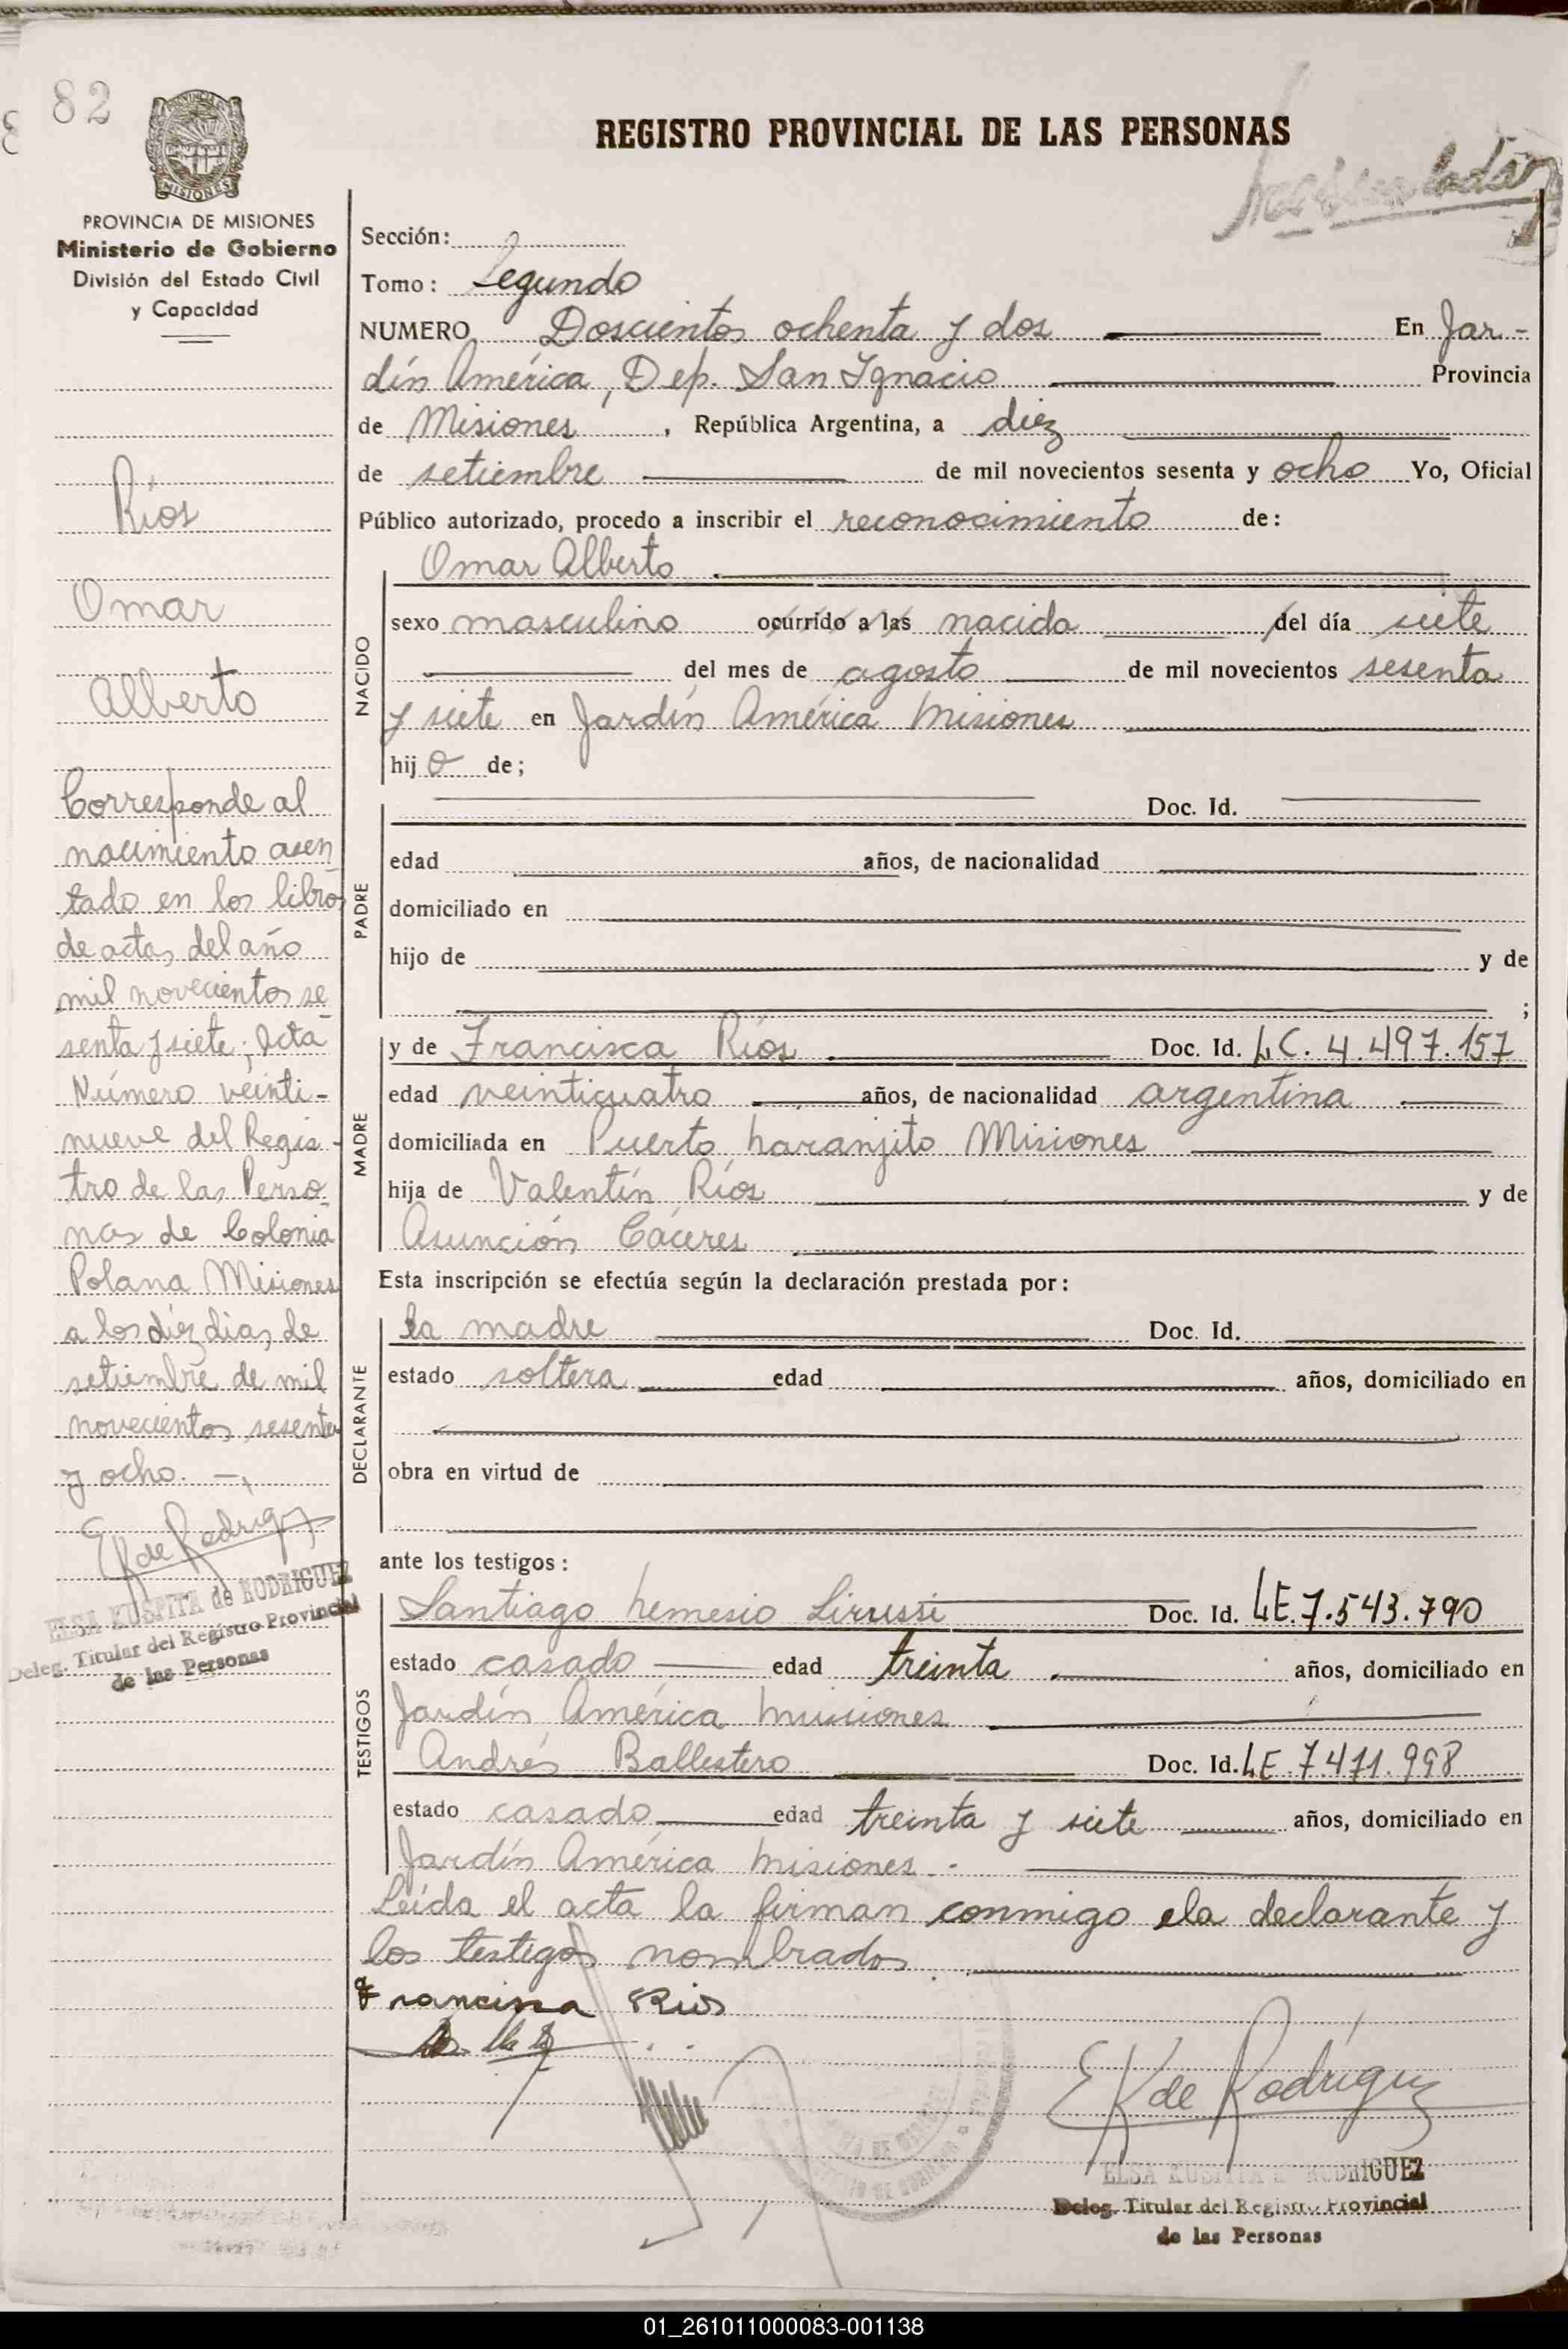 82
REGISTRO PROVINCIAL DE LAS PERSONAS
PROVINCIA DE MISIONES
Ministerio de Gobierno
División del Estado Civil
y Capacidad
Ríos
Omar
Alberto
Corresponde al
nacimiento asen
tado en los libros
de actas del año
mil novecientos se
senta y siete; Acta
Número veinti-
nueve del Regis-
tro de las Perso
nas de Colonia
Polana Misiones
a los diéz dias de
setiembre de mil
novecientos sesenta
y ocho. -
EK de Rodríguez
ELSA KUSPITA de RODRIGUEZ
Deleg. Titular del Registro Provincial
de las Personas
Sección:
Tomo: Segundo
NUMERO Doscientos ochenta y dos En Jar-
dín América, Dep. San Ignacio Provincia
de Misiones, República Argentina, a diez
de setiembre de mil novecientos sesenta y ocho Yo, Oficial
Público autorizado, procedo a inscribir el reconocimiento de:
NACIDO
Omar Alberto
sexo masculino ocurrido a las nacida del día siete
del mes de agosto de mil novecientos sesenta
y siete en Jardín América Misiones
hijo de;
PADRE
Doc. Id.
edad años, de nacionalidad
domiciliado en
hijo de y de
;
MADRE
y de Francisca Ríos Doc. Id. LC. 4.497.157
edad veinticuatro años, de nacionalidad argentina
domiciliada en Puerto Naranjito Misiones
hija de Valentín Ríos y de
Asunción Cáceres
Esta inscripción se efectúa según la declaración prestada por:
DECLARANTE
La madre Doc. Id.
estado soltera edad años, domiciliado en
obra en virtud de
ante los testigos:
TESTIGOS
Santiago Nemesio Lirussi Doc. Id. LE.7.543.790
estado casado edad treinta años, domiciliado en
Jardín América Misiones
Andrés Ballestero Doc. Id. LE 7.411.998
estado casado edad treinta y siete años, domiciliado en
Jardín América Misiones.-
Leída el acta la firman conmigo ela declarante y
los testigos nombrados.
Francisca Rios
EK de Rodríguez
ELSA KUSPITA de RODRIGUEZ
Deleg. Titular del Registro Provincial
de las Personas
01_261011000083-001138